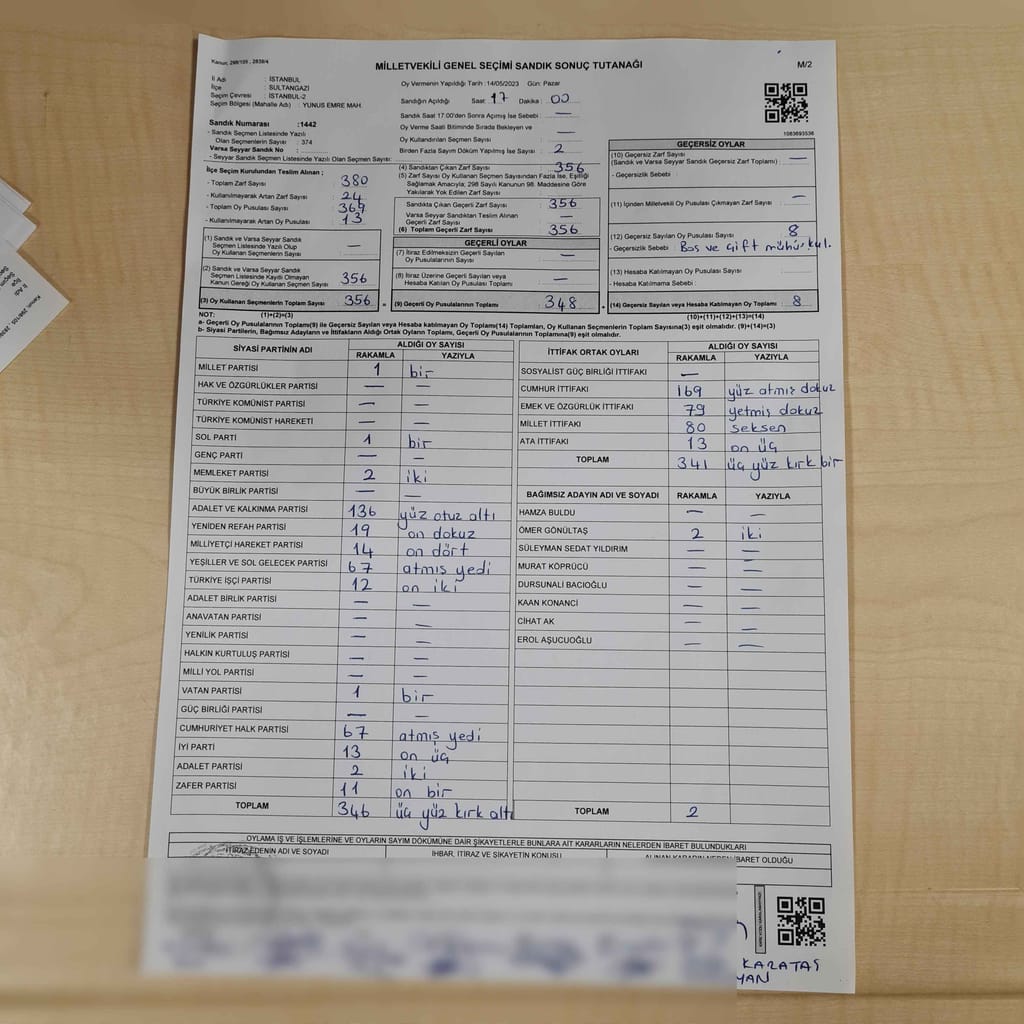 Kanun; 298/105 , 2839/4
MİLLETVEKİLİ GENEL SEÇİMİ SANDIK SONUÇ TUTANAĞI
M/2
İl Adı : İSTANBUL
İlçe : SULTANGAZİ
Seçim Çevresi : İSTANBUL-2
Seçim Bölgesi (Mahalle Adı) : YUNUS EMRE MAH.
Sandık Numarası :1442
- Sandık Seçmen Listesinde Yazılı
Olan Seçmenlerin Sayısı : 374
Varsa Seyyar Sandık No :
- Seyyar Sandık Seçmen Listesinde Yazılı Olan Seçmen Sayısı:
İlçe Seçim Kurulundan Teslim Alınan ;
- Toplam Zarf Sayısı : 380
- Kullanılmayarak Artan Zarf Sayısı : 24
- Toplam Oy Pusulası Sayısı : 369
- Kullanılmayarak Artan Oy Pusulası : 13
(1) Sandık ve Varsa Seyyar Sandık
Seçmen Listesinde Yazılı Olup
Oy Kullanan Seçmenlerin Sayısı —
(2) Sandık ve Varsa Seyyar Sandık
Seçmen Listesinde Kayıtlı Olmayan
Kanun Gereği Oy Kullanan Seçmenlerin Sayısı 356
(3) Oy Kullanan Seçmenlerin Toplam Sayısı 356 =
(1)+(2)=(3)
Oy Vermenin Yapıldığı Tarih :14/05/2023 Gün: Pazar
Sandığın Açıldığı Saat: 17 Dakika : 00
Sandık Saat 17:00'den Sonra Açımış İse Sebebi : —
Oy Verme Saati Bitiminde Sırada Bekleyen ve
Oy Kullandırılan Seçmen Sayısı : —
Birden Fazla Sayım Döküm Yapılmış İse Sayısı : 2
(4) Sandıktan Çıkan Zarf Sayısı : 356
(5) Zarf Sayısı Oy Kullanan Seçmen Sayısından Fazla İse, Eşitliği
Sağlamak Amacıyla, 298 Sayılı Kanunun 98. Maddesine Göre
Yakılarak Yok Edilen Zarf Sayısı
Sandıkta Çıkan Geçerli Zarf Sayısı 356
Varsa Seyyar Sandıktan Teslim Alınan
Geçerli Zarf Sayısı —
(6) Toplam Geçerli Zarf Sayısı 356
GEÇERLİ OYLAR
(7) İtiraz Edilmeksizin Geçerli Sayılan
Oy Pusulalarının Sayısı —
(8) İtiraz Üzerine Geçerli Sayılan veya
Hesaba Katılan Oy Pusulalarının Sayısı —
(9) Geçerli Oy Pusulalarının Toplamı 348
1083693536
GEÇERSİZ OYLAR
(10) Geçersiz Zarf Sayısı
(Sandık ve Varsa Seyyar Sandık Geçersiz Zarf Toplamı) : —
- Geçersizlik Sebebi :
(11) İçinden Milletvekili Oy Pusulası Çıkmayan Zarf Sayısı : —
(12) Geçersiz Sayılan Oy Pusulası Sayısı : 8
- Geçersizlik Sebebi : Boş ve Çift mühür kul.
(13) Hesaba Katılmayan Oy Pusulası Sayısı :
- Hesaba Katılmama Sebebi :
(14) Geçersiz Sayılan veya Hesaba Katılmayan Oy Toplamı : 8
(10)+(11)+(12)+(13)=(14)
NOT:
a- Geçerli Oy Pusulalarının Toplamı(9) ile Geçersiz Sayılan veya Hesaba katılmayan Oy Toplamı(14) Toplamları, Oy Kullanan Seçmenlerin Toplam Sayısına(3) eşit olmalıdır. (9)+(14)=(3)
b- Siyasi Partilerin, Bağımsız Adayların ve İttifakların Aldığı Ortak Oyların Toplamı, Geçerli Oy Pusulalarının Toplamına(9) eşit olmalıdır.
SİYASİ PARTİNİN ADI ALDIĞI OY SAYISI
RAKAMLA YAZIYLA
MİLLET PARTİSİ 1 bir
HAK VE ÖZGÜRLÜKLER PARTİSİ — —
TÜRKİYE KOMÜNİST PARTİSİ — —
TÜRKİYE KOMÜNİST HAREKETİ — —
SOL PARTİ 1 bir
GENÇ PARTİ — —
MEMLEKET PARTİSİ 2 iki
BÜYÜK BİRLİK PARTİSİ — —
ADALET VE KALKINMA PARTİSİ 136 yüz otuz altı
YENİDEN REFAH PARTİSİ 19 on dokuz
MİLLİYETÇİ HAREKET PARTİSİ 14 on dört
YEŞİLLER VE SOL GELECEK PARTİSİ 67 atmış yedi
TÜRKİYE İŞÇİ PARTİSİ 12 on iki
ADALET BİRLİK PARTİSİ — —
ANAVATAN PARTİSİ — —
YENİLİK PARTİSİ — —
HALKIN KURTULUŞ PARTİSİ — —
MİLLİ YOL PARTİSİ — —
VATAN PARTİSİ 1 bir
GÜÇ BİRLİĞİ PARTİSİ — —
CUMHURİYET HALK PARTİSİ 67 atmış yedi
İYİ PARTİ 13 on üç
ADALET PARTİSİ 2 iki
ZAFER PARTİSİ 11 on bir
TOPLAM 346 üç yüz kırk altı
İTTİFAK ORTAK OYLARI ALDIĞI OY SAYISI
RAKAMLA YAZIYLA
SOSYALİST GÜÇ BİRLİĞİ İTTİFAKI —
CUMHUR İTTİFAKI 169 yüz atmış dokuz
EMEK VE ÖZGÜRLÜK İTTİFAKI 79 yetmiş dokuz
MİLLET İTTİFAKI 80 seksen
ATA İTTİFAKI 13 on üç
TOPLAM 341 üç yüz kırk bir
BAĞIMSIZ ADAYIN ADI VE SOYADI RAKAMLA YAZIYLA
HAMZA BULDU — —
ÖMER GÖNÜLTAŞ 2 iki
SÜLEYMAN SEDAT YILDIRIM — —
MURAT KÖPRÜCÜ — —
DURSUNALİ BACIOĞLU — —
KAAN KONANCİ — —
CİHAT AK — —
EROL AŞUCUOĞLU — —
TOPLAM 2
OYLAMA İŞ VE İŞLEMLERİNE VE OYLARIN SAYIM DÖKÜMÜNE DAİR ŞİKAYETLERLE BUNLARA AİT KARARLARIN NELERDEN İBARET BULUNDUKLARI
İTİRAZ EDENİN ADI VE SOYADI İHBAR, İTİRAZ VE ŞİKAYETİN KONUSU ALINAN KARARIN NEDEN İBARET OLDUĞU
KARATAŞ